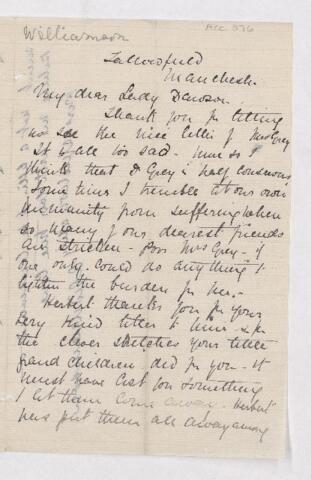 Williamson
Acc 576
Fallowfield
Manchester
My dear Lady Dawson.
Thank you for letting
us see the nice letter of Mrs Grey
It is all too sad. more so I
think that Dr Grey is half conscious
Sometimes I tremble at our own
immunity from suffering when
so many of our dearest friends
are stricken - Poor Mrs Grey - if
one only could do anything to
lighten the burden for her. -
Herbert thanks you for your
very kind letter to him & for
the clever sketches your little
grand children did for you - it
must have cost you something
to let them come away. Herbert
has put them all away among